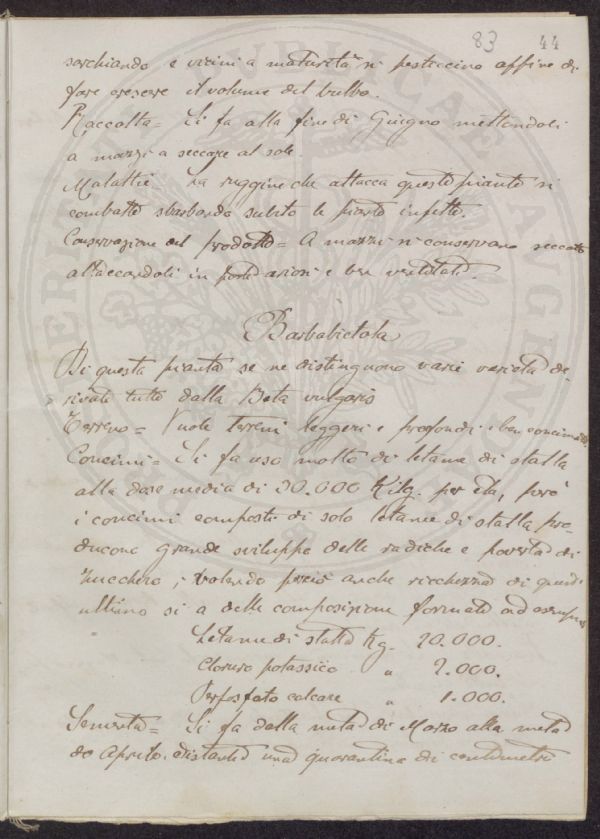 83 44
sarchiando e vicini a maturità si pesteccino affine di
fare crescere il volume del bulbo.
Raccolta = Si fa alla fine di Giugno mettendoli
a mazzi a seccare al sole.
Malattie = La ruggine che attacca queste piante si
combatte sbarbando subito le piante infette.
Conservazione del prodotto = A mazzi si conservano seccati
attaccandoli in posti ariosi e ben ventilati.
Barbabietola
Di questa pianta se ne distinguono varie varietà de
rivate tutte dalla Beta vulgaris
Terreno = Vuole terreni leggeri e profondi e ben concimati
Concimi = Si fa uso molto di letame di stalla
alla dose media di 30.000 Kilg. per eta, però
i concimi composti di solo letame di stalla pro
ducono grande sviluppo delle radiche e povertà di
Zucchero; volendo perciò anche ricchezza di quest'
ultimo si a delle composizione formate ad esempio
Letame di stalla Kg. 20.000.
Cloruro potassico " 2.000.
Perfosfato calcare " 1.000.
Sementa = Si fa dalla metà di Marzo alla metà
de Aprile. distante una quarantina di centimetri
PUBLICAE AUGENDO